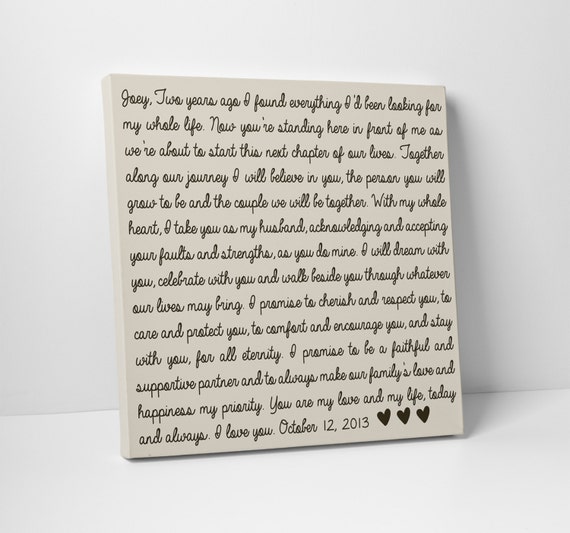 Joey, Two years ago I found everything I'd been looking for
my whole life. Now you're standing here in front of me as
we're about to start this next chapter of our lives. Together
along our journey I will believe in you, the person you will
grow to be and the couple we will be together. With my whole
heart, I take you as my husband, acknowledging and accepting
your faults and strengths, as you do mine. I will dream with
you, celebrate with you and walk beside you through whatever
our lives may bring. I promise to cherish and respect you, to
care and protect you, to comfort and encourage you, and stay
with you, for all eternity. I promise to be a faithful and
supportive partner and to always make our family's love and
happiness my priority. You are my love and my life, today
and always. I love you. October 12, 2013